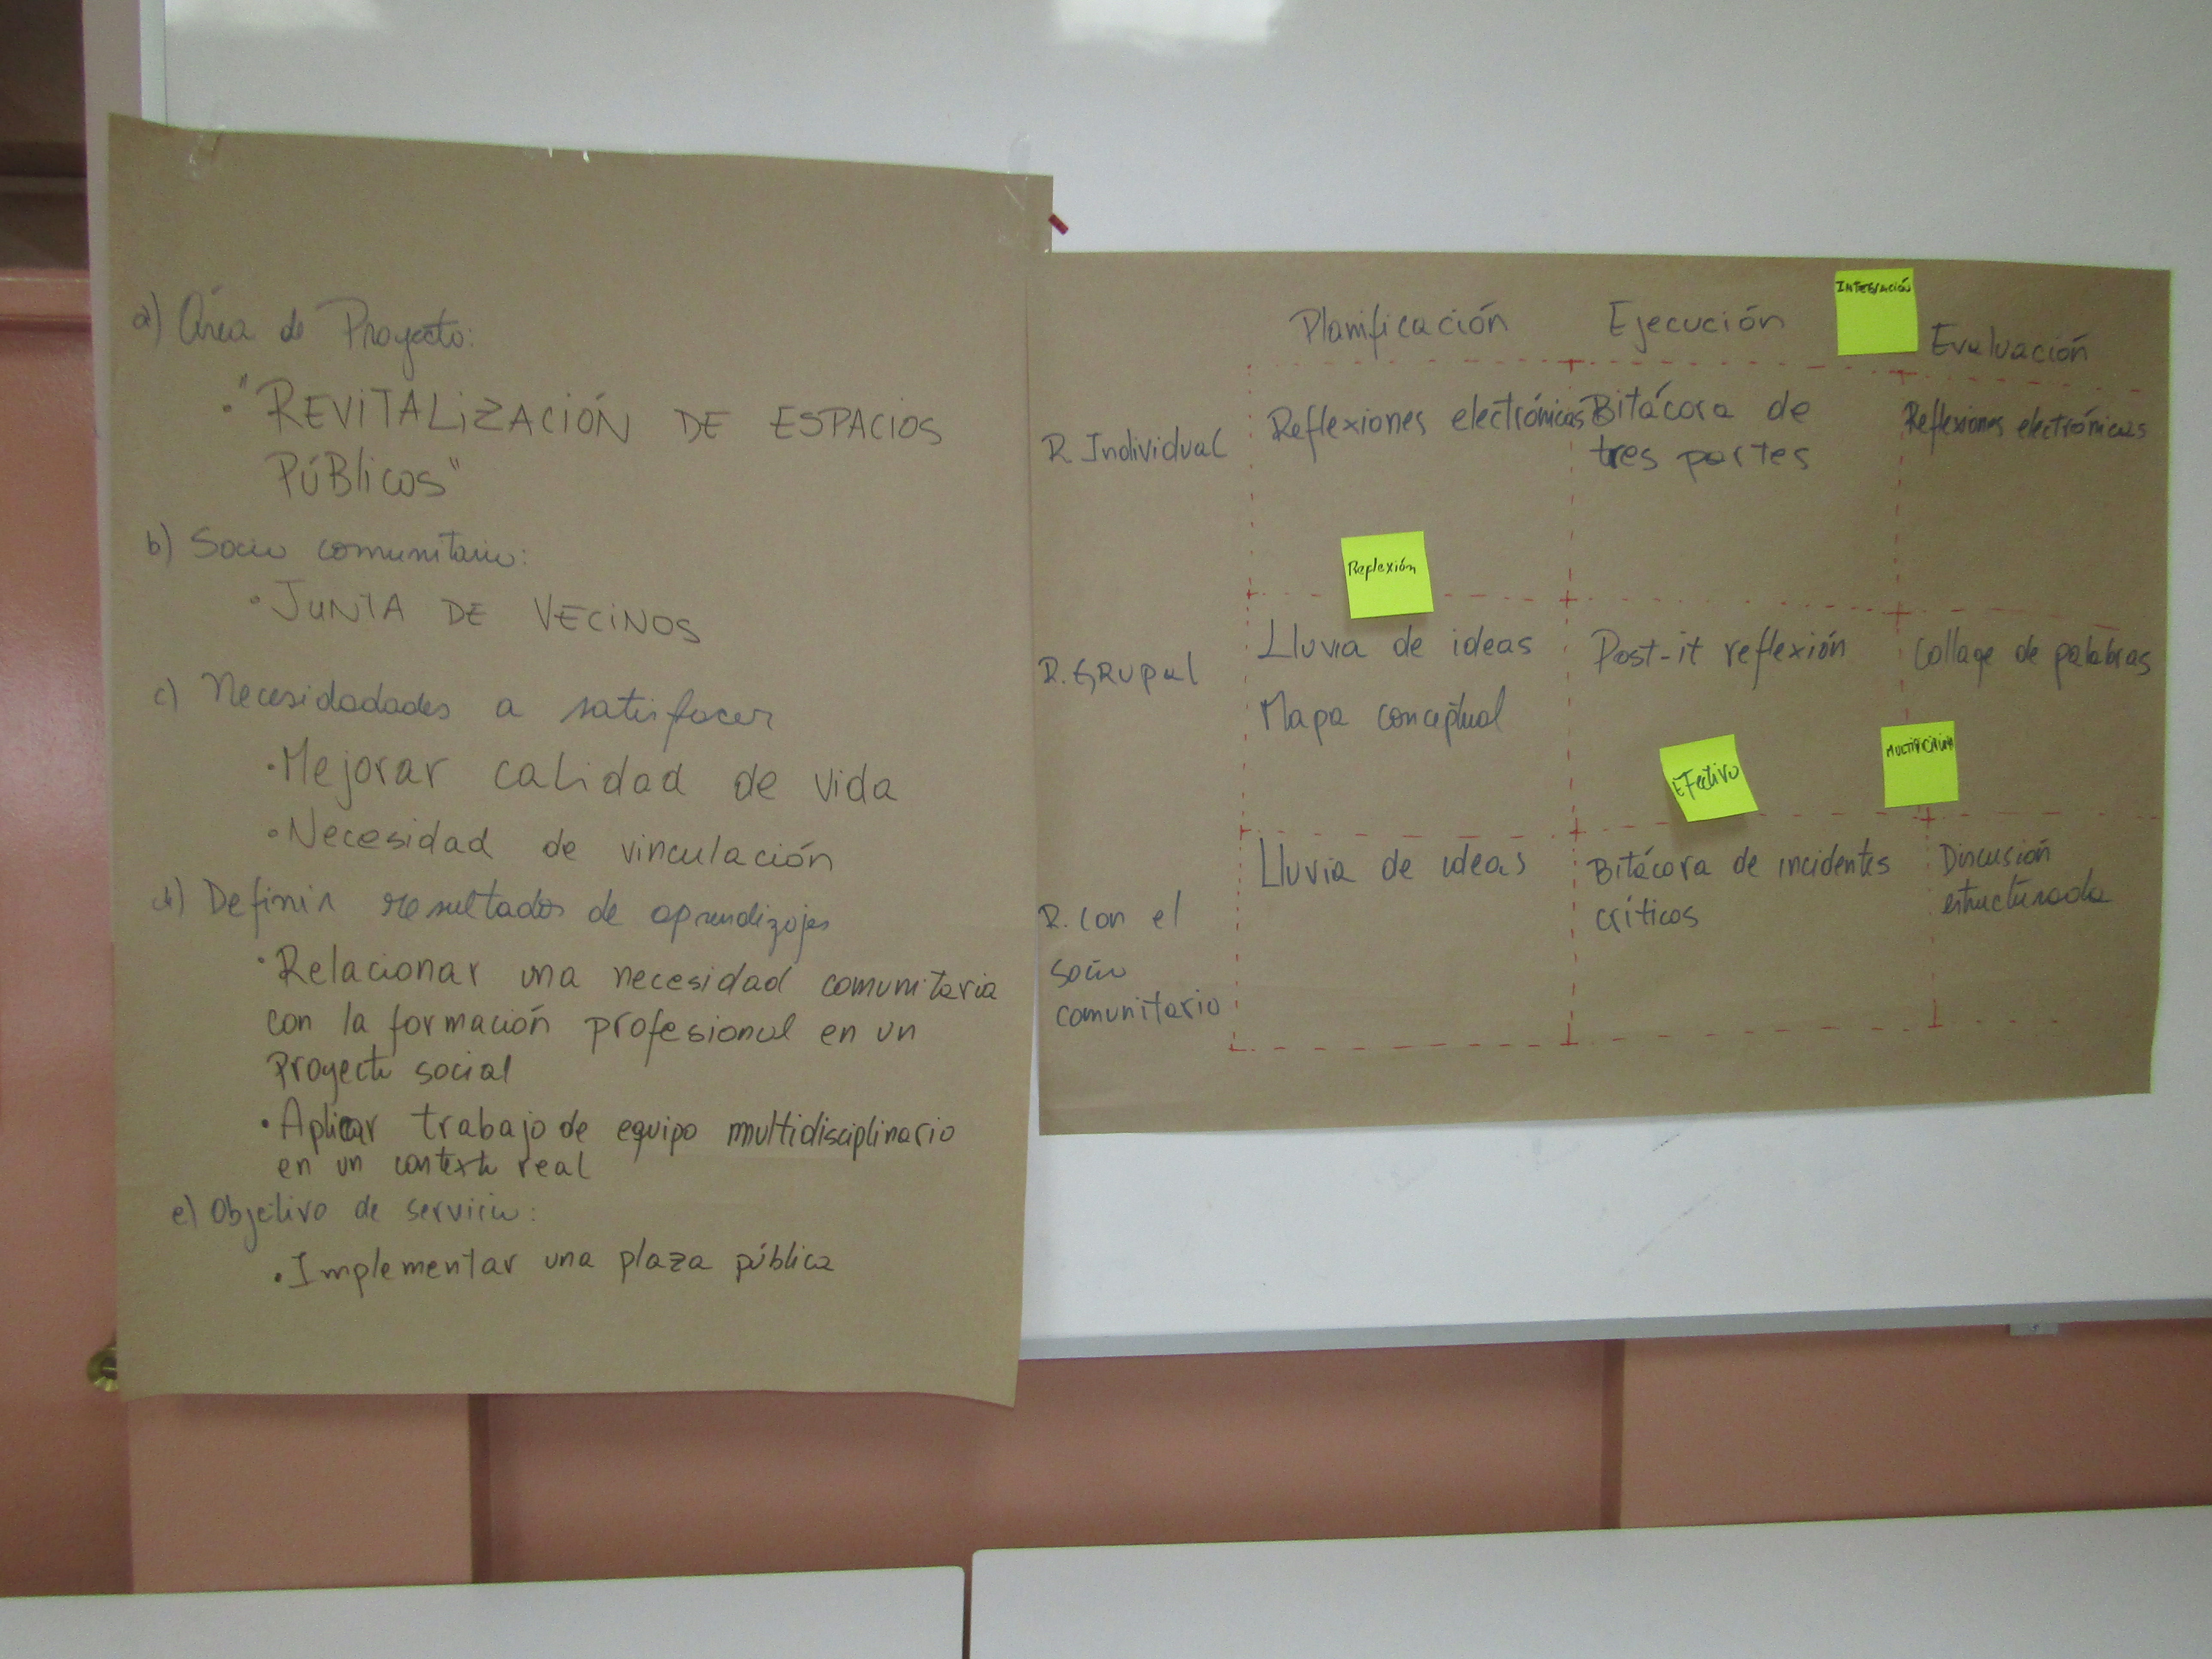 a) Área de Proyecto:
• "REVITALIZACIÓN DE ESPACIOS
PÚBLICOS"
b) Socio comunitario:
• JUNTA DE VECINOS
c) Necesidadades a satisfacer
• Mejorar calidad de vida
• Necesidad de vinculación
d) Definir resultados de aprendizajes
• Relacionar una necesidad comunitaria
con la formación profesional en un
Proyecto social
• Aplicar trabajo de equipo multidisciplinario
en un contexto real
e) Objetivo de servicio:
• Implementar una plaza pública
Planificación Ejecución INTEGRACIÓN Evaluación
R. Individual Reflexiones electrónicas Bitácora de Reflexiones electrónicas
tres partes
Reflexión
R. GRUPAL Lluvia de ideas Post-it reflexión Collage de palabras
Mapa conceptual
Efectivo
R. con el Lluvia de ideas Bitácora de incidentes Discusión
socio críticos estructurada
comunitario